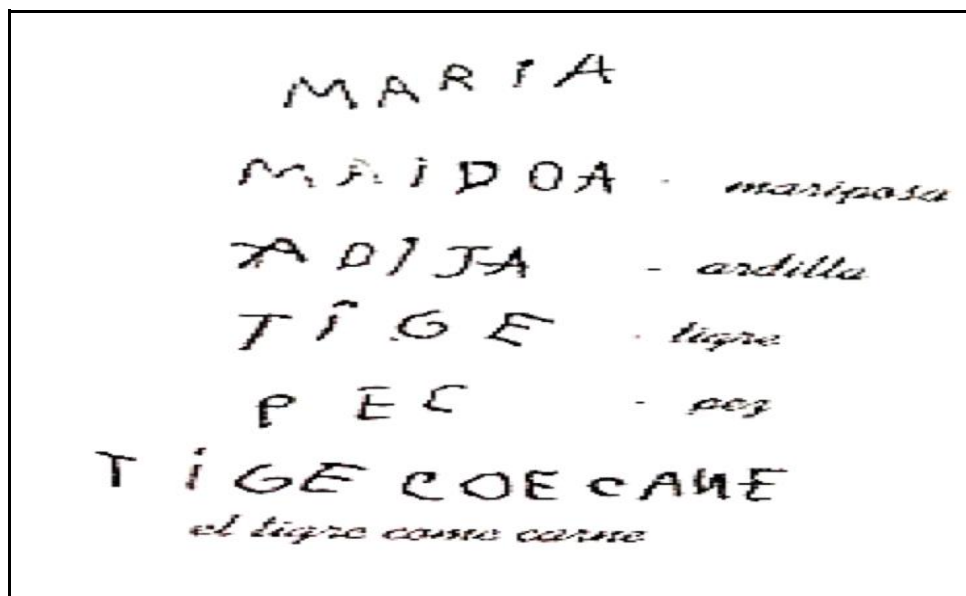 MARiA
MAiDOA - mariposa
ADIJA - ardilla
TiGE - tigre
PEC - pez
TiGECOECANE
el tigre come carne